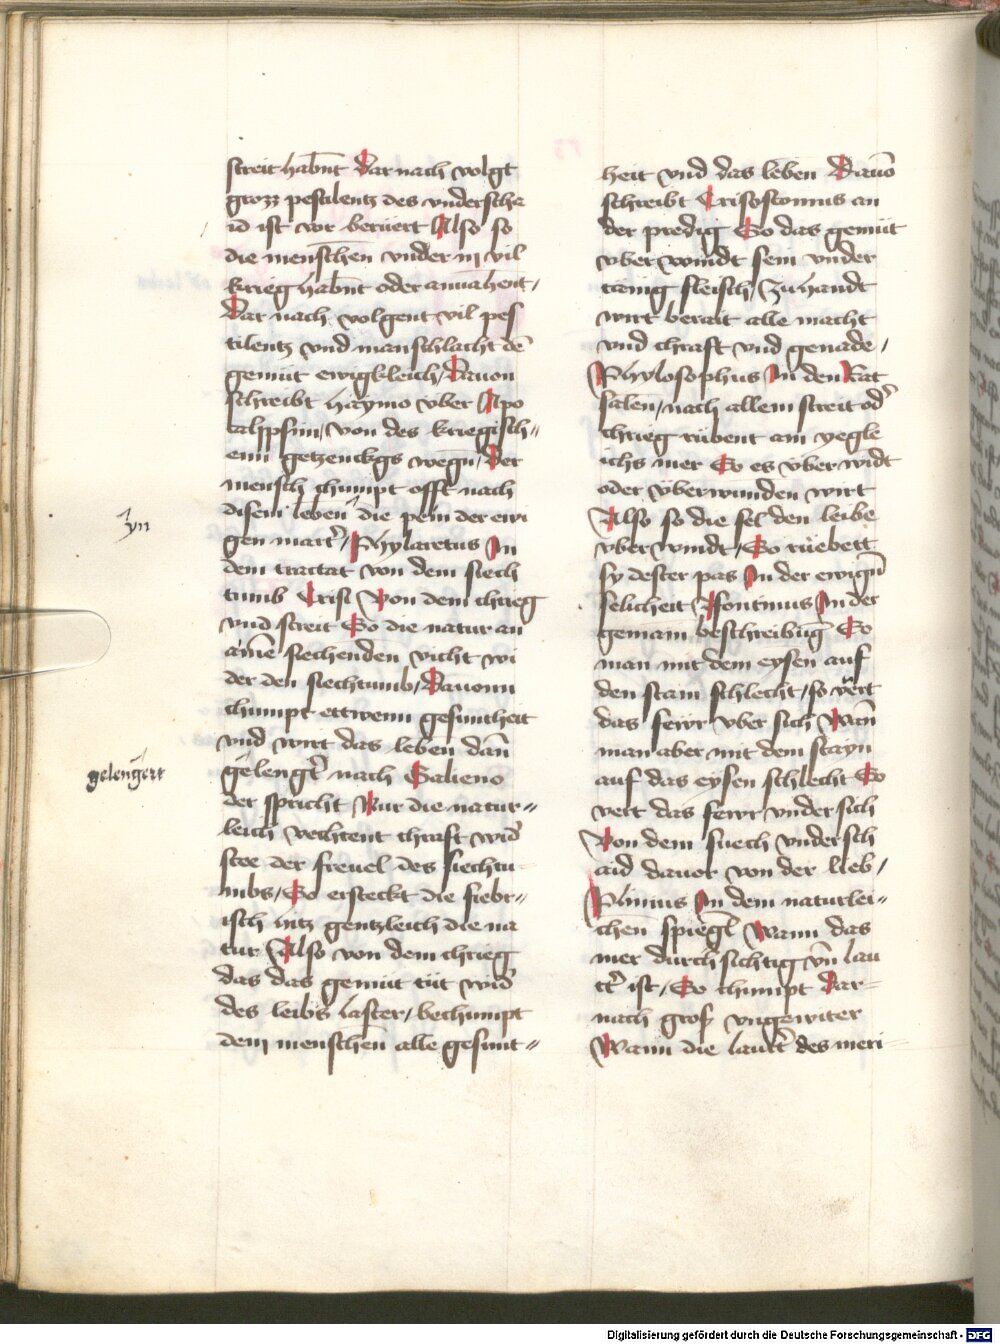 streit habn̄t Dar nach volgt
grozz pestilentz des vnderscha
id ist vor berüert Also so
die menschen vnder in vil
krieg habn̄t oder anuahent /
Dar nach volgent vil pes
tilentz vnd manschlacht dē
gemüt ewigkleich / Dauon
schreibt haymo vber Apo
calipsim / von des kriegisch=
enn getzenckgs wegn̄ / Der
mensch chumpt offt nach
disem leben die pein der ewi
yn
gen mart̄ / Phylaretus In
dem tractat von dem siech
tumb Crist Von dem chrieg
vnd streit So die natur an
aīne siechenden vicht wi
der den siechtumb / Dauonn
chumpt ettwenn gesuntheit
vnd wirt das leben dan̄
gelengt̄ nach Galieno
gelengert
der spricht Nur die natur=
leich vechtent chraft wid̄
stee der freuel des siechtu
mbs / So ersteckt die fiebr=
isch hitz gentzleich die na
tur Also von dem chrieg
das das gemüt tüt wid̄
des leibs laster / bechumpt
dem menschen alle gesunt=
heit vnd das leben Dauō
schreibt Crisostomus an
der predig So das gemüt
vber windt sein vnder
tänig fleisch / Zu handt
wirt berait alle macht
vnd chraft vnd genade /
Phylosophus In den Rat
salen / nach allem streit od̄
chrieg rübent am yegle
ichs mer So es vber widt
oder vberwunden wirt
Also so die sel den leibe
vber windt / So rüebett
sy dester pas In der ewign̄
selicheit Isontinus In der
gemain beschreibūg So
man mit dem eysen auf
den stain schlecht / so vert
das fewr vber sich Wan̄
man aber mit dem stayn
auf das eysen schlecht So
vert das fewr vnder sich
Von dem suech vndersch
aid dauor von der lieb /
Plinius In dem naturlei=
chen spiegl̄ Wann das
mer durchsichtig vn̄ lau
tr̄ ist / So chumpt Dar=
nach gros vngewiter
Wann die lautr̄ des meri